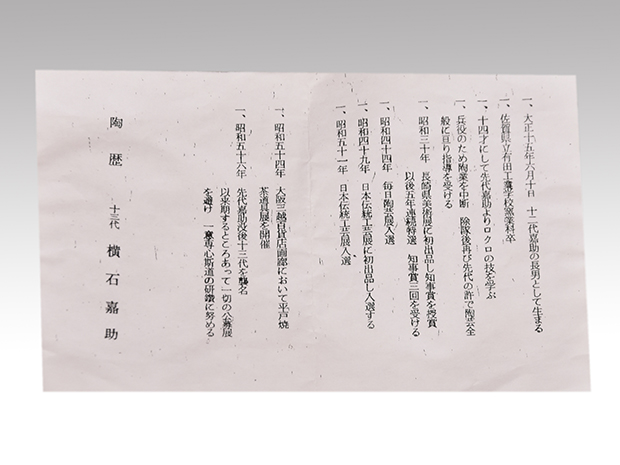 一、大正十五年六月十日 十二代嘉助の長男として生まる
一、佐賀県立有田工業学校窯業科卒
一、十四才にして先代嘉助よりロクロの技を学ぶ
一、兵役のため陶業を中断 除隊後再び先代の許で陶芸全
般に亘り指導を受ける
一、昭和三十年 長崎県美術展に初出品し知事賞を授賞
以後五年連続特選 知事賞三回を受ける
一、昭和四十四年 毎日陶芸展入選
一、昭和四十九年 日本伝統工芸展に初出品し入選する
一、昭和五十一年 日本伝統工芸展入選
一、昭和五十四年 大阪三越百貨店画廊において平戸焼
茶道具展を開催
一、昭和五十六年 先代嘉助没後十三代を襲名
以来期するところあって一切の公募展
を避け 一意専心斯道の研鑽に努める
陶歴 十三代 横石嘉助